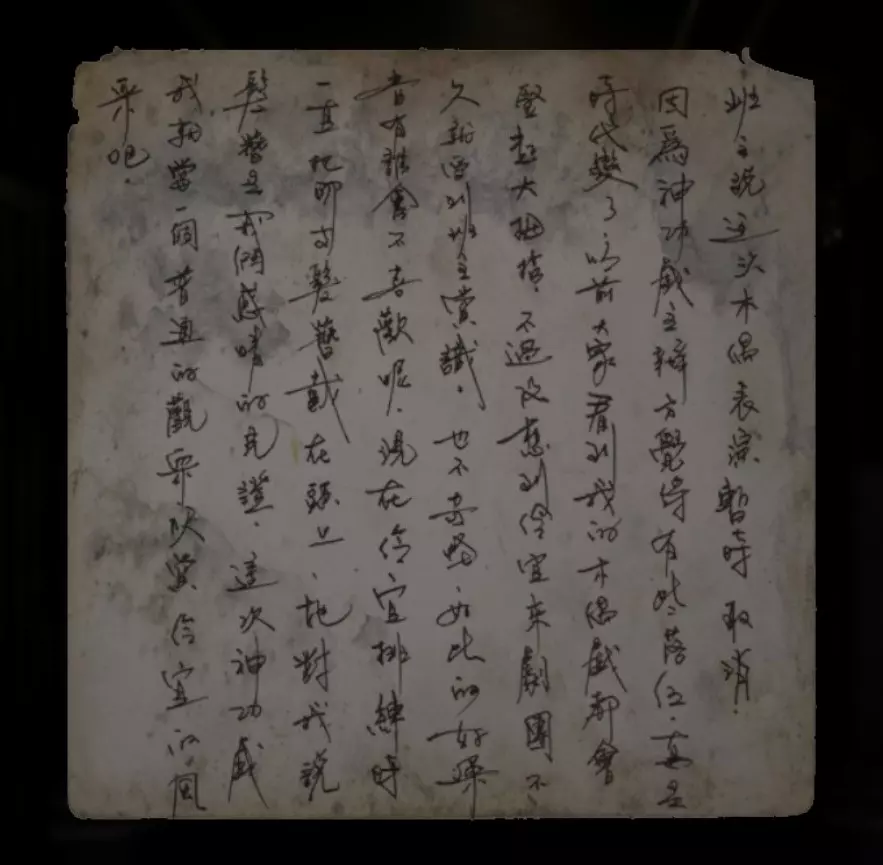 班主說這次木偶表演暫時取消。
因為神功戲主辦方覺得有些落伍。真是
時代變了，以前大家看到我的木偶戲都會
豎起大拇指。不過沒想到伶宜來劇團不
久就受到班主賞識。也不奇怪，如此的好嗓
音有誰會不喜歡呢。現在伶宜排練時
一直把那支髮簪戴在頭上，她對我說
髮簪是我們感情的見證。這次神功戲
我就當一個普通的觀眾欣賞伶宜的風
采吧。